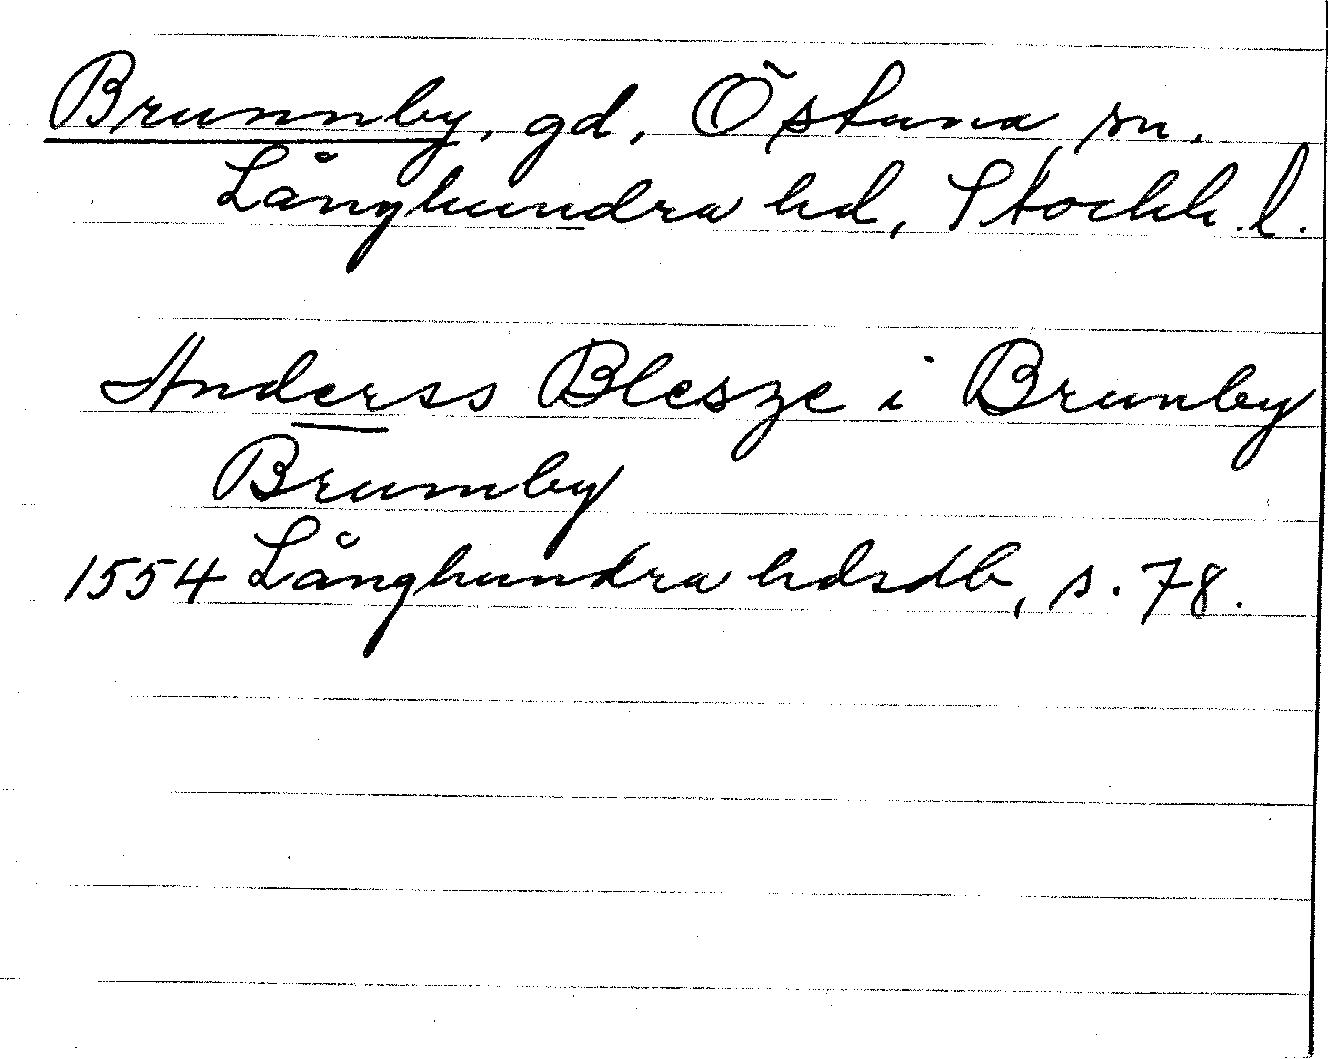 Brunnby, gd, Östuna sn.
Långhundra hd, Stockh. l.
Anderss Blesze i Brunby
Brumby
1554 Långhundra hdsdb, s. 78.